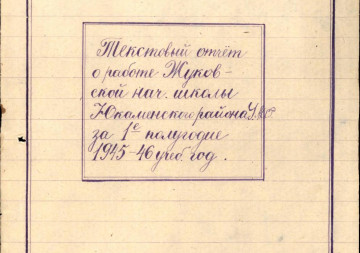 Текстовый отчёт
о работе Жуков-
ской нач. школы
Юкаменского района У.А.С.Р.
за 1е полугодие
1945-46 учеб. год.